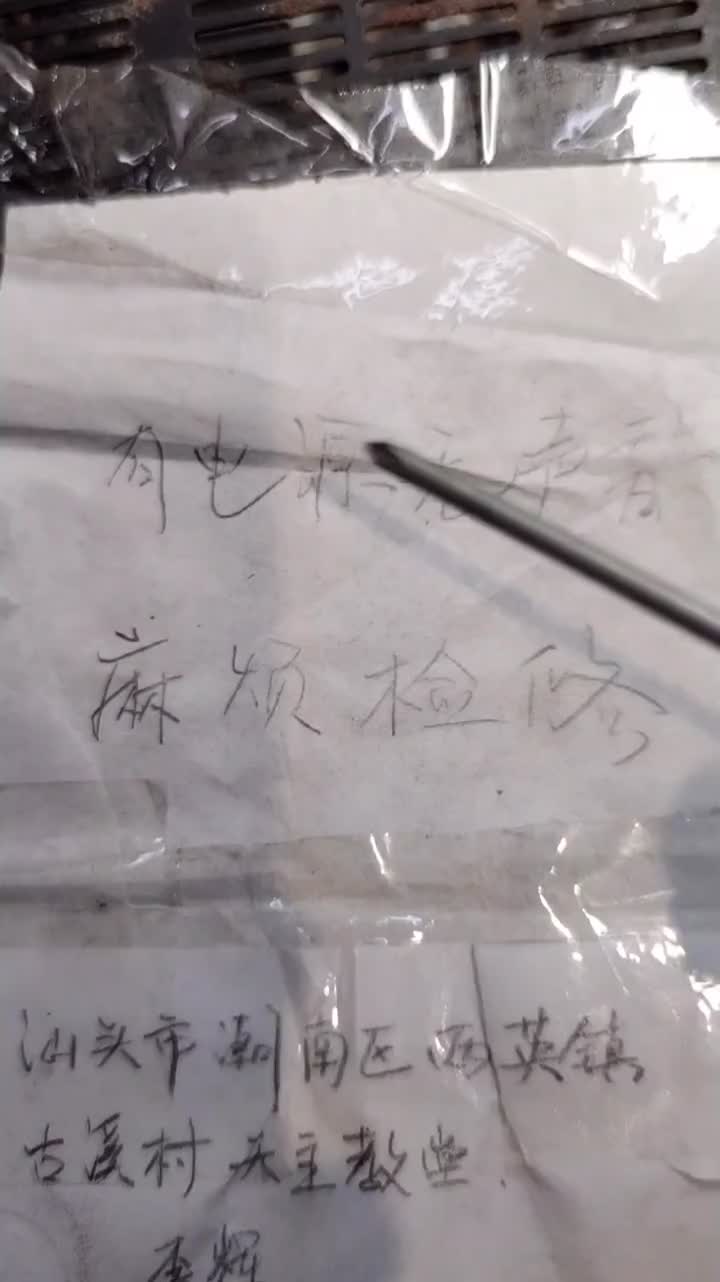 有电源无声音
麻烦检修
汕头市潮南区两英镇
古溪村天主教堂.
辉